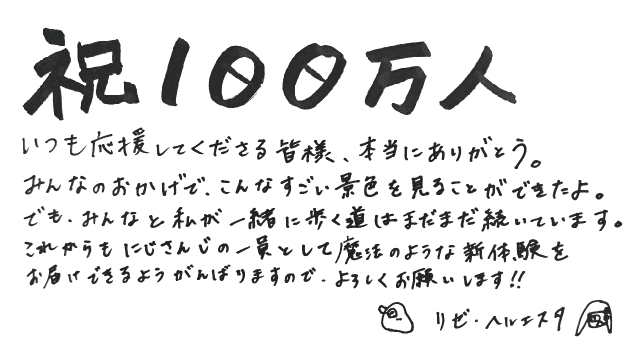 祝100万人
いつも応援してくださる皆様、本当にありがとう。
みんなのおかげで、こんなすごい景色を見ることができたよ。
でも、みんなと私が一緒に歩く道はまだまだ続いています。
これからもにじさんじの一員として魔法のような新体験を
お届けできるようがんばりますので、よろしくお願いします!!
リゼ・ヘルエスタ